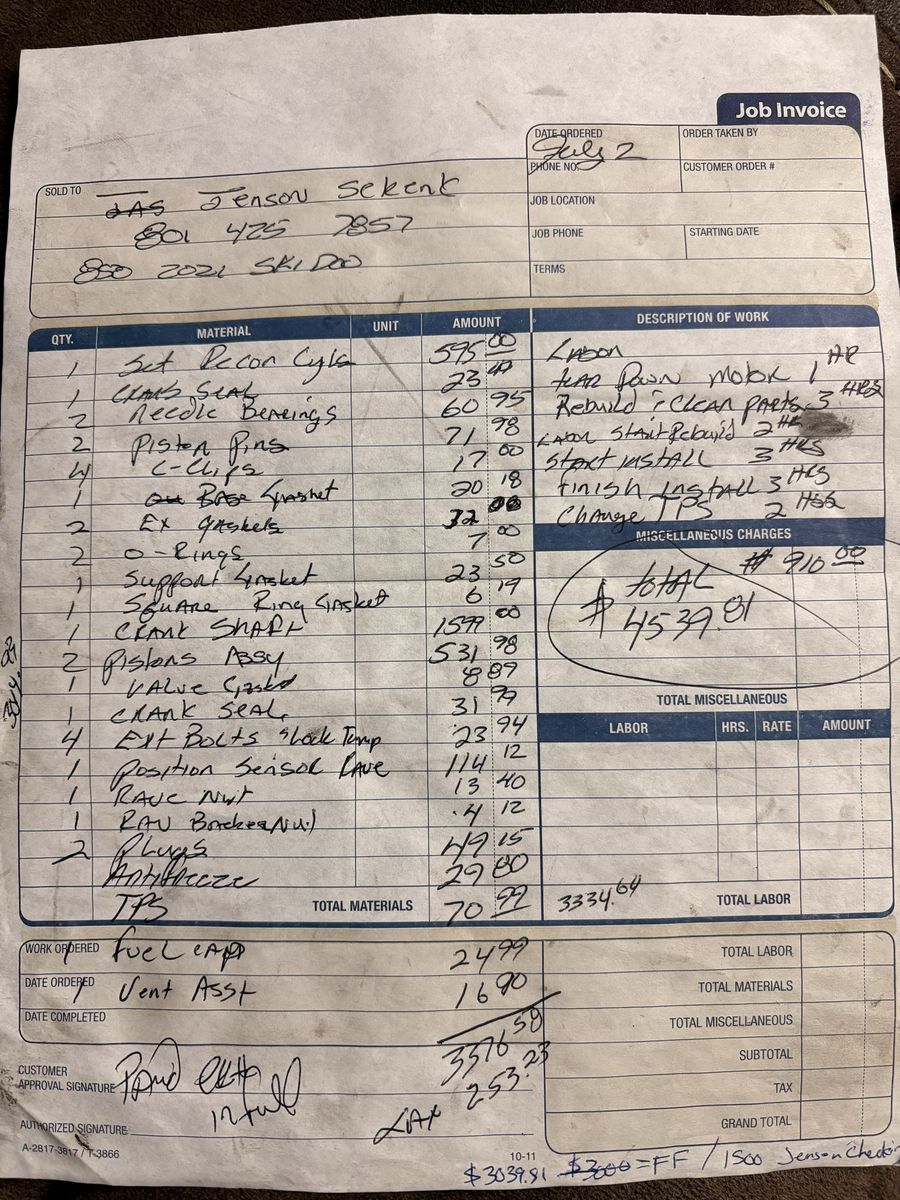 Job Invoice
DATE ORDERED
July 2
ORDER TAKEN BY
PHONE NO.
CUSTOMER ORDER #
JOB LOCATION
JOB PHONE
STARTING DATE
TERMS
SOLD TO
JAS Jenson Sekent
801 425 7857
850 2021 SKIDOO
QTY. MATERIAL UNIT AMOUNT
1 Set Recon Cyls 595 00
1 CRANK SEAL 23 49
2 Needle Bearings 60 95
2 Piston Pins 71 98
4 C-Clips 17 00
1 Base Gasket 20 18
2 Ex gaskets 32 00
2 O-Rings 7 00
1 Support Gasket 23 50
1 Square Ring Gasket 6 19
1 CRANK SHAFT 1599 00
2 Pistons Assy 531 98
1 VALVE Gasket 8 89
1 CRANK SEAL 31 99
4 Ext Bolts 23 94
1 Position Sensor RAVE 114 12
1 RAVE Nut 13 40
1 RAV 4 12
2 Plugs 49 15
Antifreeze 29 80
TPS 70 99
TOTAL MATERIALS
DESCRIPTION OF WORK
LABOR
tear Down motor 1 HR
Rebuild & CLEAN PARTS 3 HRS
Labor Start Rebuild 2 HR
START INSTALL 3 HRS
finish Install 3 HRS
Change TPS 2 HRS
MISCELLANEOUS CHARGES
total # 910 00
$ 4539.81
TOTAL MISCELLANEOUS
LABOR HRS. RATE AMOUNT
3334.64 TOTAL LABOR
WORK ORDERED
1 fuel cap 24 99
DATE ORDERED
1 Vent Asst 16 90
DATE COMPLETED
3376 58
TAX 253.23
CUSTOMER
APPROVAL SIGNATURE
Paid
in full
AUTHORIZED SIGNATURE
A-2817-3817 / T-3866
10-11
TOTAL LABOR
TOTAL MATERIALS
TOTAL MISCELLANEOUS
SUBTOTAL
TAX
GRAND TOTAL
$3039.81 $3000 = FF / 1500 Jenson Checkin